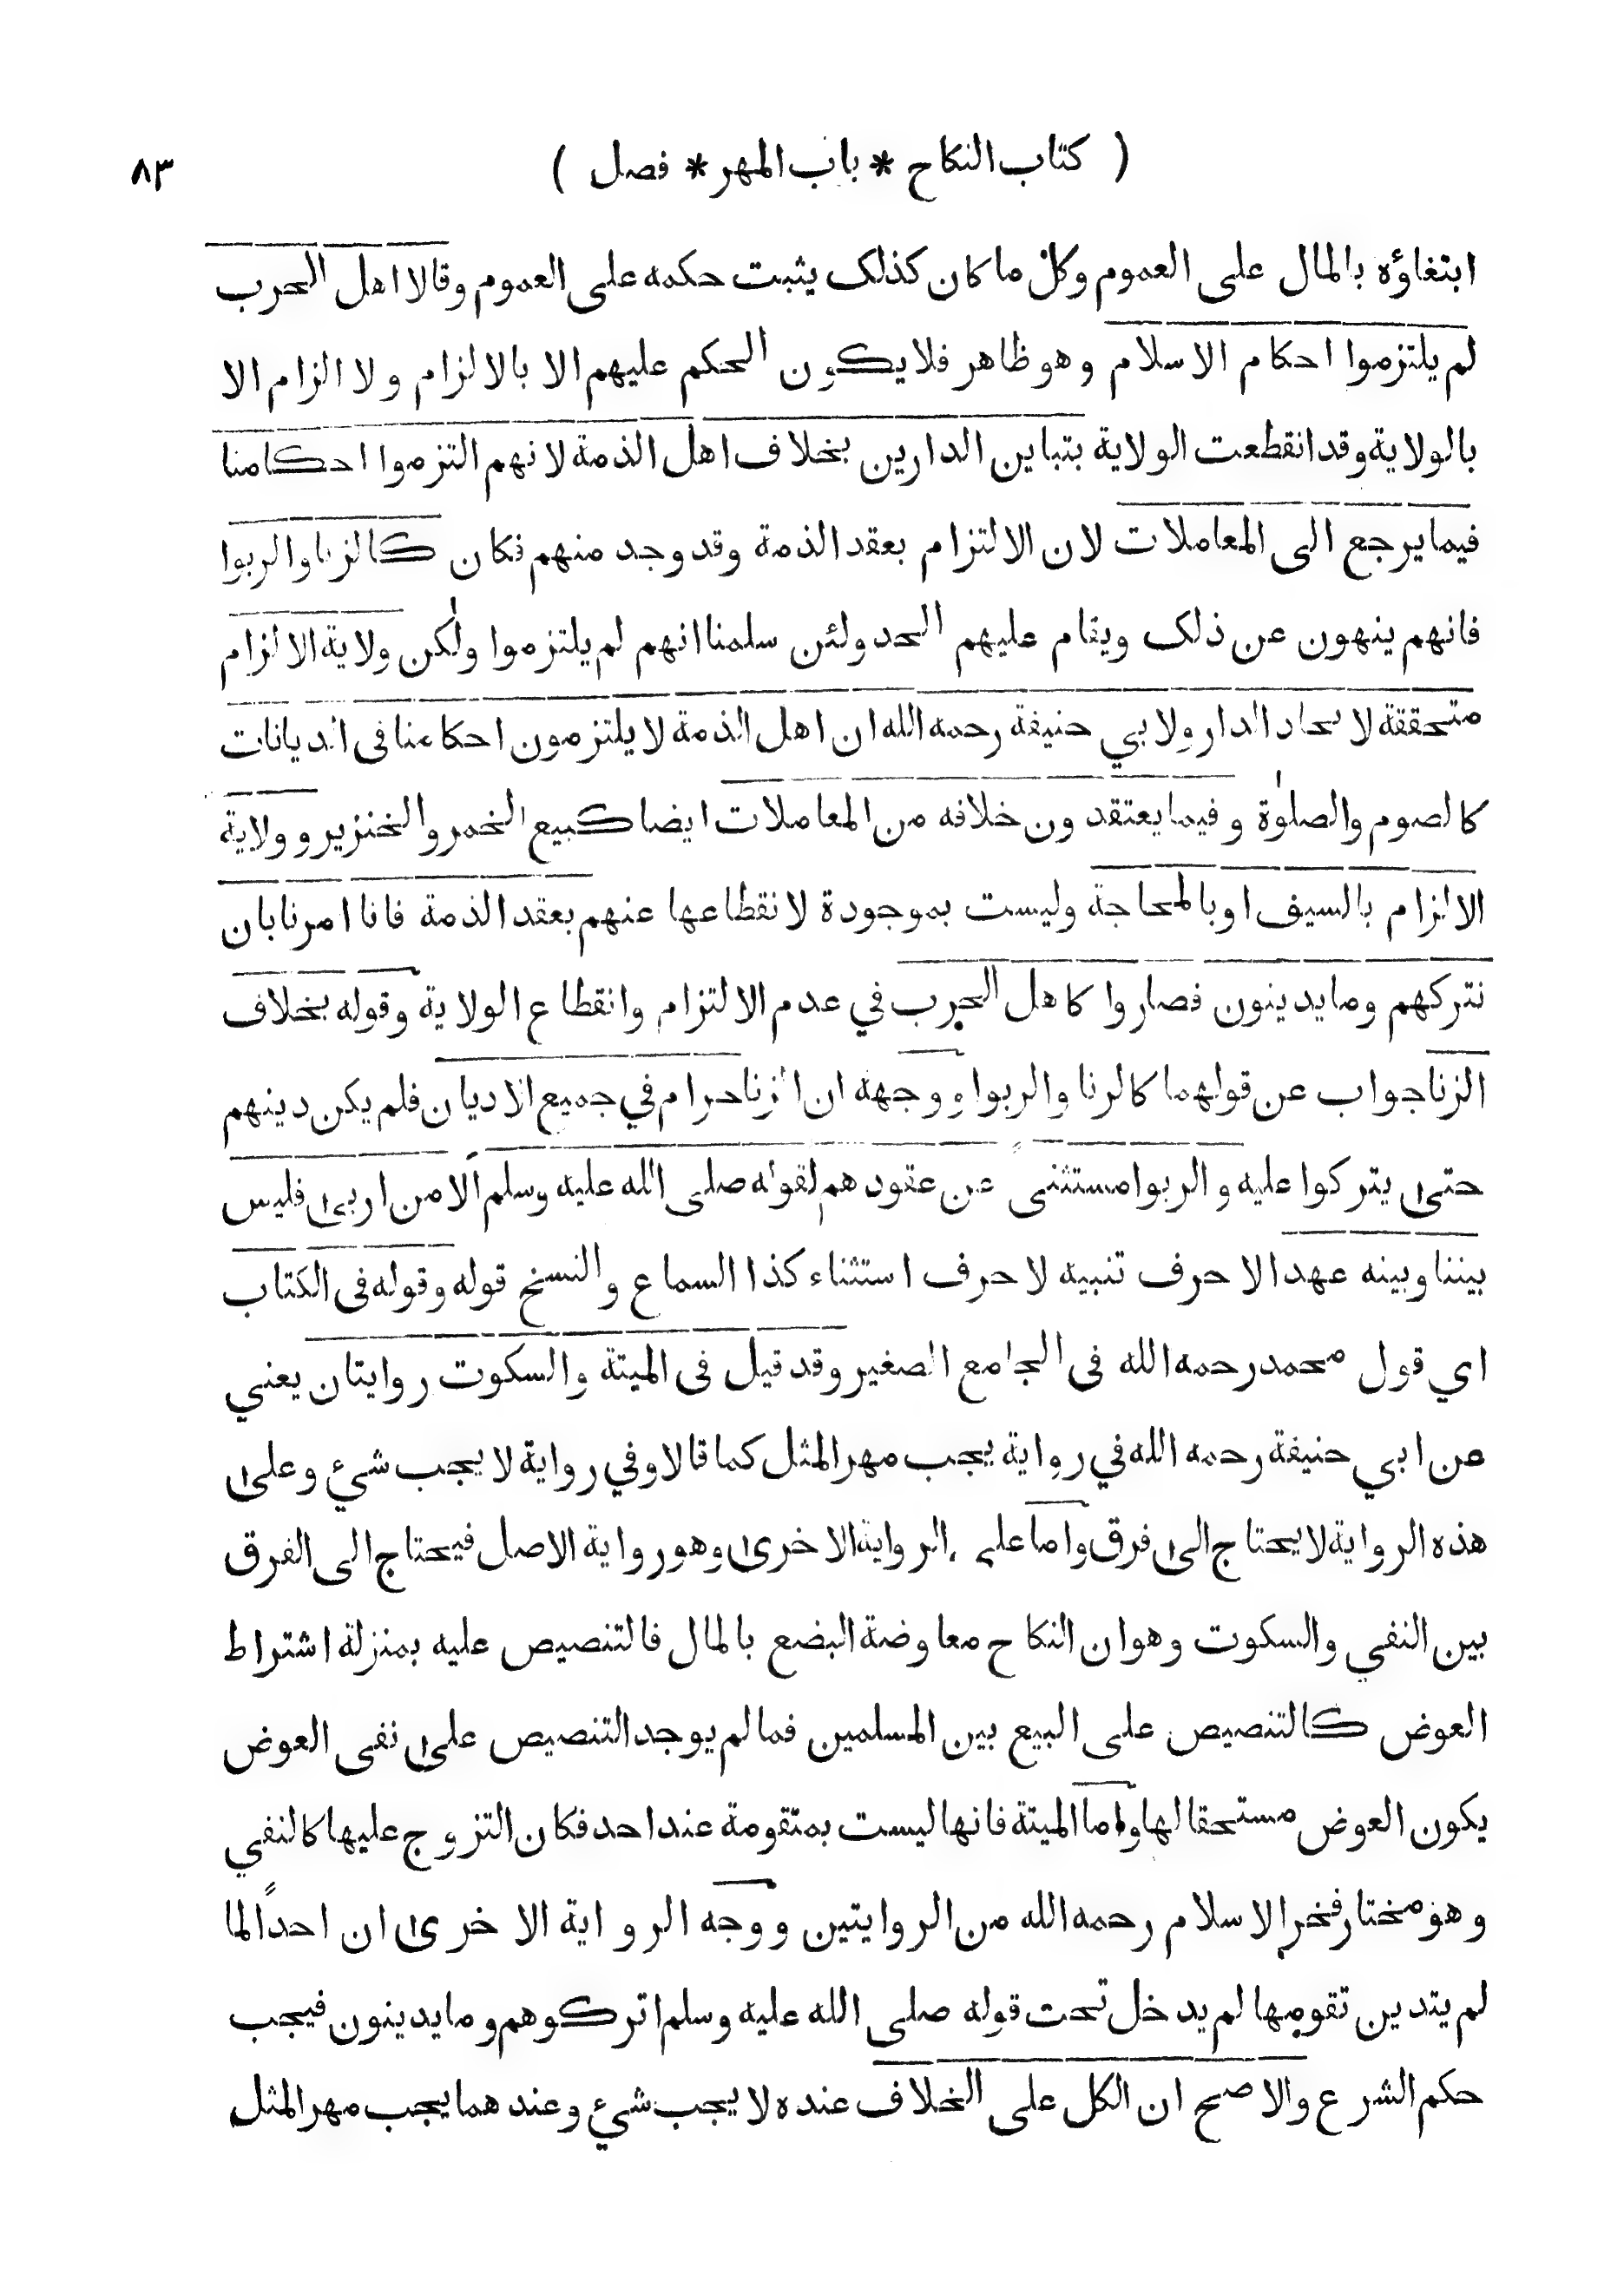 ( كتاب النكاح * باب المهر * فصل ) ٨٣
ابتغاؤه بالمال على العموم وكل ما كان كذلك يثبت حكمه على العموم وقالا اهل الحرب
لم يلتزموا احكام الاسلام وهو ظاهر فلا يكون الحكم عليهم الا بالالزام ولا الزام الا
بالولاية وقد انقطعت الولاية بتباين الدارين بخلاف اهل الذمة لانهم التزموا احكامنا
فيما يرجع الى المعاملات لان الالتزام بعقد الذمة وقد وجد منهم فكان كالزنا والربوا
فانهم ينهون عن ذلك ويقام عليهم الحد ولئن سلمنا انهم لم يلتزموا ولكن ولاية الالزام
متحققة لاتحاد الدار ولابي حنيفة رحمه الله ان اهل الذمة لا يلتزمون احكامنا فى الديانات
كالصوم والصلوٰة وفيما يعتقدون خلافه من المعاملات ايضا كبيع الخمر والخنزير وولاية
الالزام بالسيف او بالمحاجة وليست بموجودة لانقطاعها عنهم بعقد الذمة فانا امرنا بان
نتركهم وما يدينون فصاروا كاهل الحرب في عدم الالتزام وانقطاع الولاية وقوله بخلاف
الزنا جواب عن قولهما كالزنا والربوا ووجهه ان الزنا حرام في جميع الاديان فلم يكن دينهم
حتى يتركوا عليه والربوا مستثنىً عن عقودهم لقوله صلى الله عليه وسلم الا من اربى فليس
بيننا وبينه عهد الا حرف تنبيه لا حرف استثناء كذا السماع والنسخ قوله وقوله فى الكتاب
اي قول محمد رحمه الله فى الجامع الصغير وقد قيل فى الميتة والسكوت روايتان يعني
عن ابي حنيفة رحمه الله في رواية يجب مهر المثل كما قالا وفي رواية لا يجب شيء وعلى
هذه الرواية لا يحتاج الى فرق واما على الرواية الاخرى وهو رواية الاصل فيحتاج الى الفرق
بين النفي والسكوت وهو ان النكاح معاوضة البضع بالمال فالتنصيص عليه بمنزلة اشتراط
العوض كالتنصيص على البيع بين المسلمين فما لم يوجد التنصيص على نفى العوض
يكون العوض مستحقا لها واما الميتة فانها ليست بمتقومة عند احد فكان التزوج عليها كالنفي
وهو مختار فخر الاسلام رحمه الله من الروايتين ووجه الرواية الاخرى ان احداً لما
لم يتدين تقومها لم يدخل تحت قوله صلى الله عليه وسلم اتركوهم وما يدينون فيجب
حكم الشرع والاصح ان الكل على الخلاف عنده لا يجب شيء وعندهما يجب مهر المثل